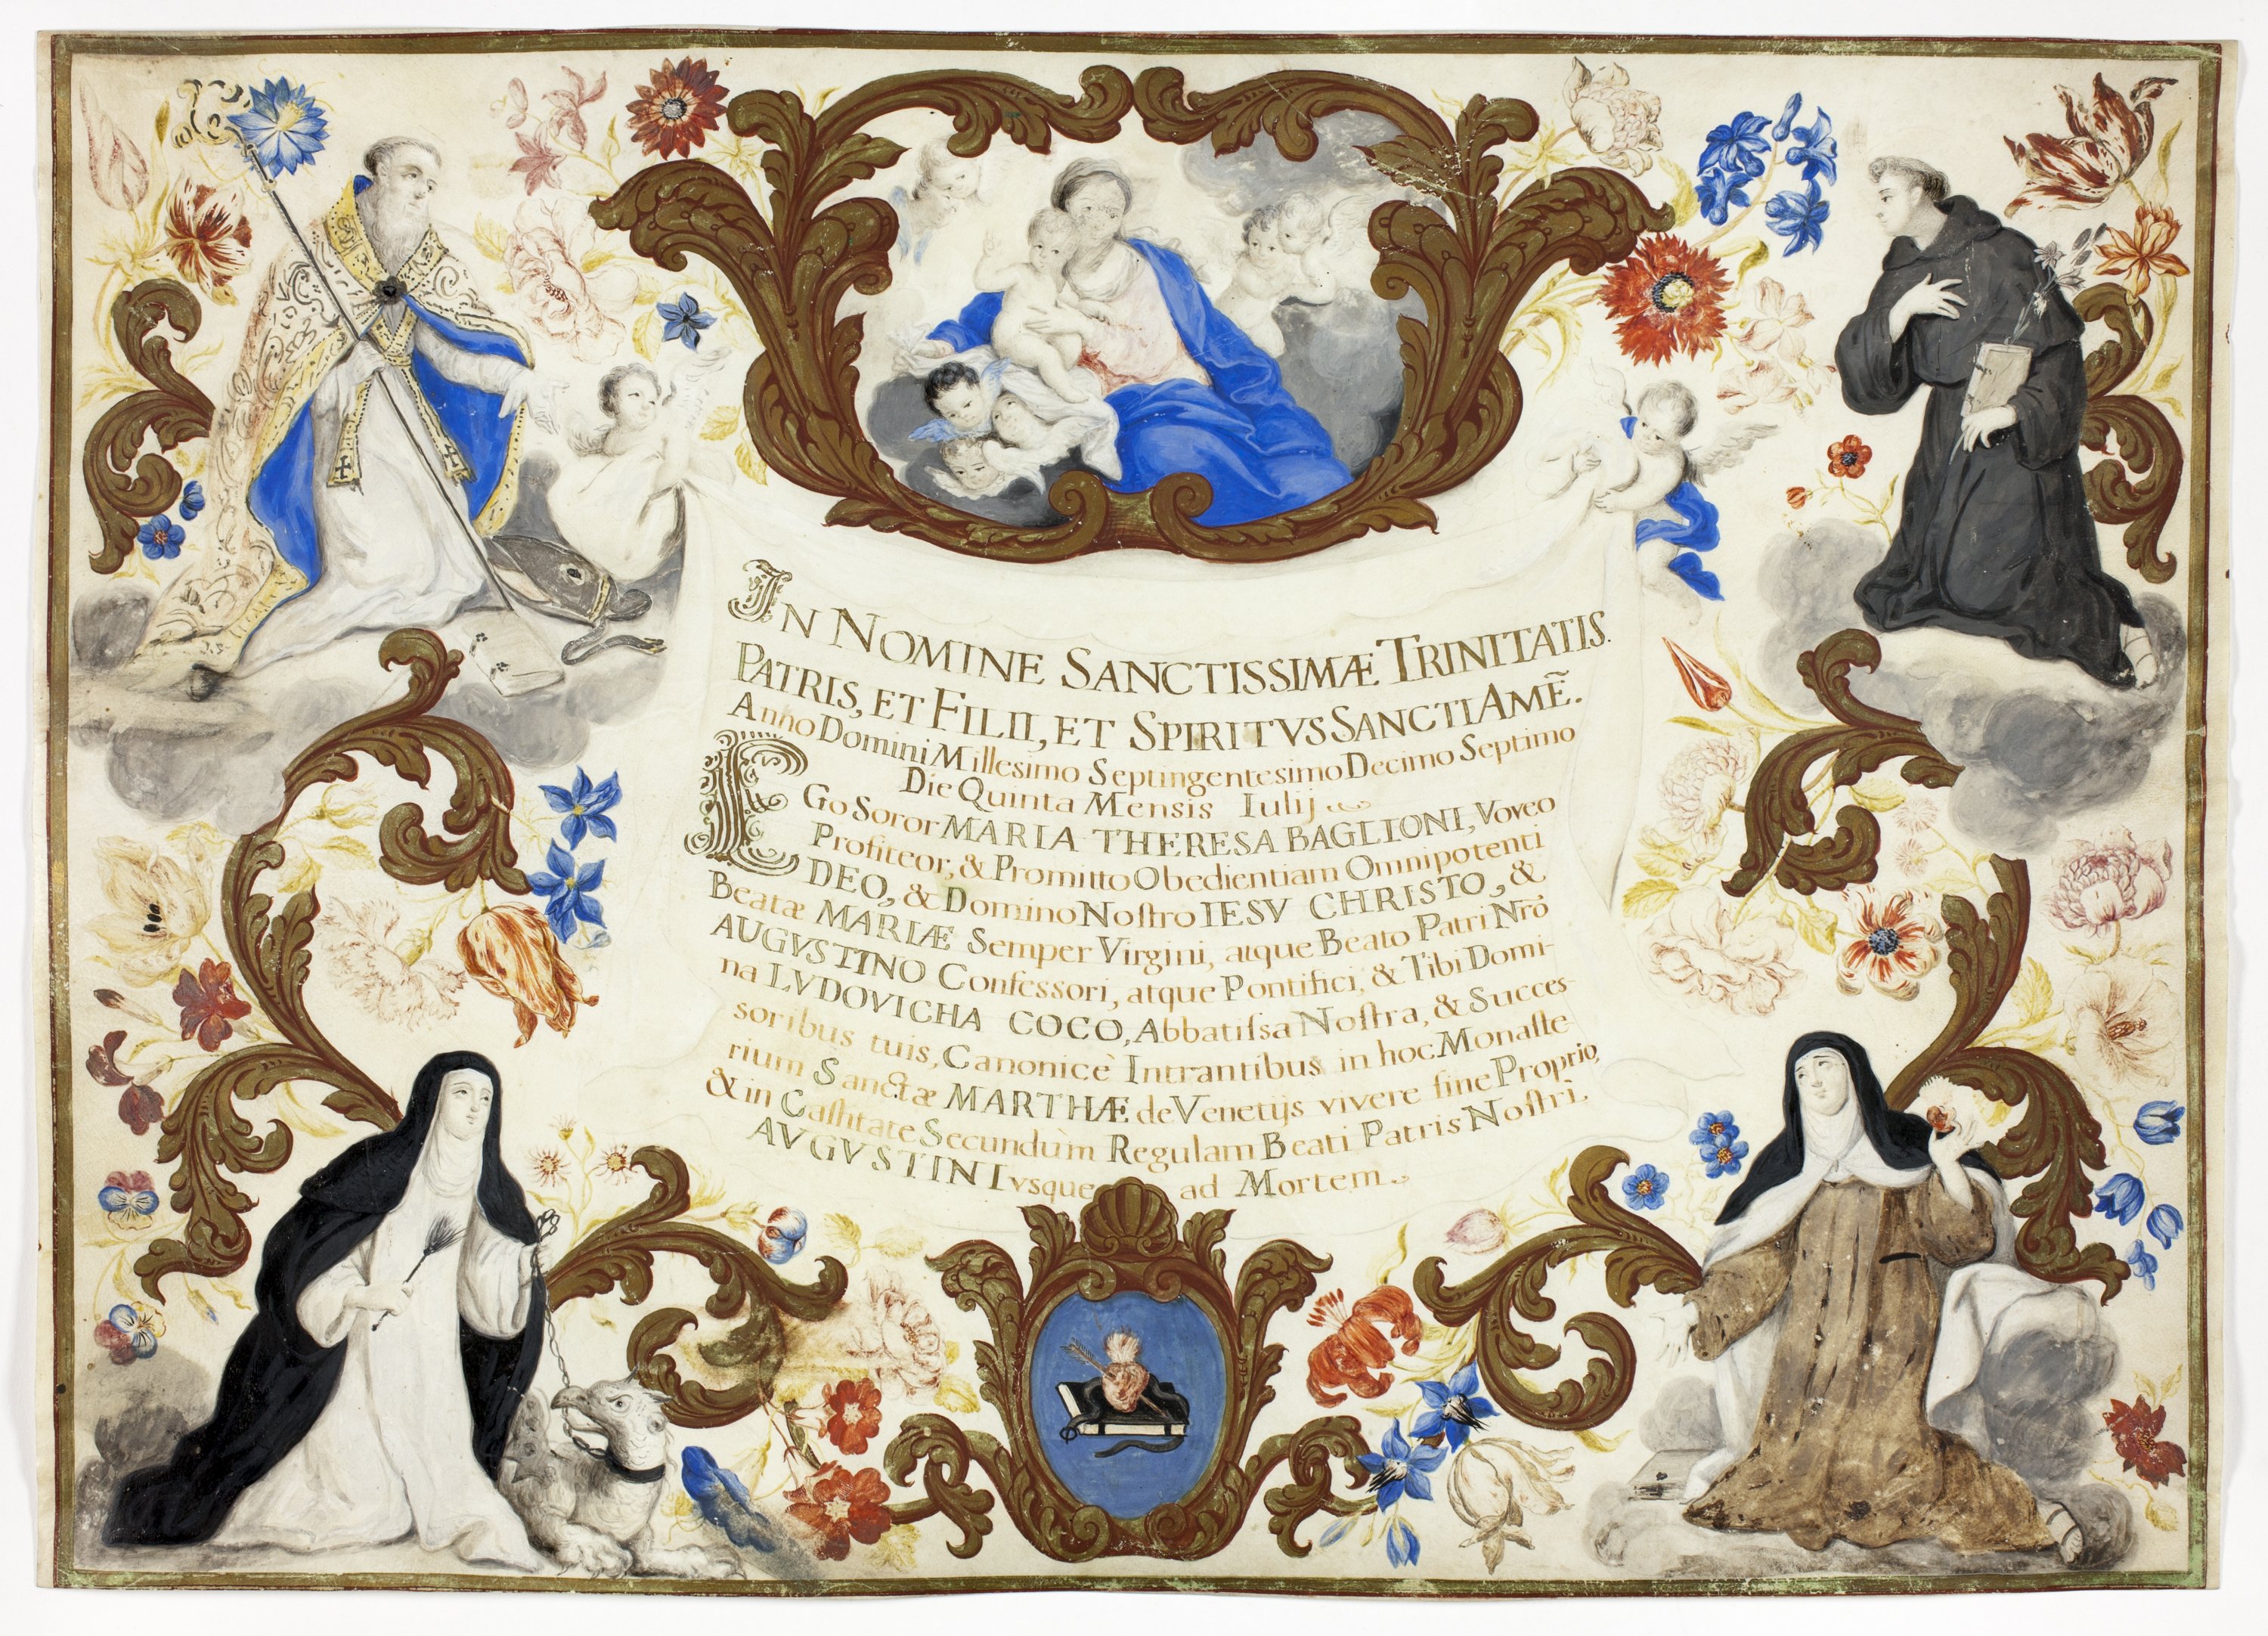 IN NOMINE SANCTISSIMÆ TRINITATIS.
PATRIS, ET FILII, ET SPIRITVS SANCTI AMẼ.
Anno Domini Millesimo Septingentesimo Decimo Septimo
Die Quinta Mensis Iulij
EGo Soror MARIA THERESA BAGLIONI, Voveo
Profiteor, & Promitto Obedientiam Omnipotenti
DEO, & Domino Noſtro IESV CHRISTO, &
Beatæ MARIÆ Semper Virgini, atque Beato Patri Nr̃o
AUGVSTINO Confessori, atque Pontifici, & Tibi Domi-
na LVDOVICHA COCO, Abbatiſsa Noſtra, & Succes-
soribus tuis, Canonicè Intrantibus in hoc Monaſte
rium Sanctæ MARTHÆ de Venetijs vivere ſine Proprio,
& in Caſtitate Secundùm Regulam Beati Patris Noſtri
AVGVSTINI vsque ad Mortem.